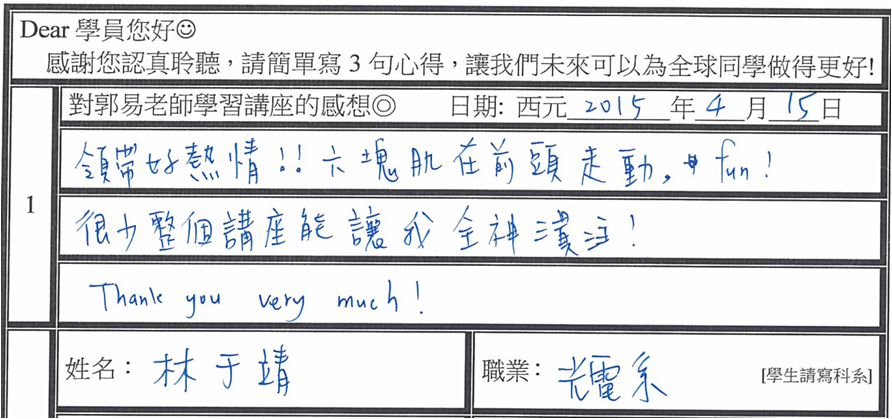 Dear 學員您好☺
感謝您認真聆聽，請簡單寫 3 句心得，讓我們未來可以為全球同學做得更好!
1
對郭易老師學習講座的感想◎ 日期: 西元 2015 年 4 月 15 日
領帶好熱情!! 六塊肌在前頭走動, fun!
很少整個講座能讓我全神灌注!
Thank you very much!
姓名： 林于靖
職業： 光電系 [學生請寫科系]